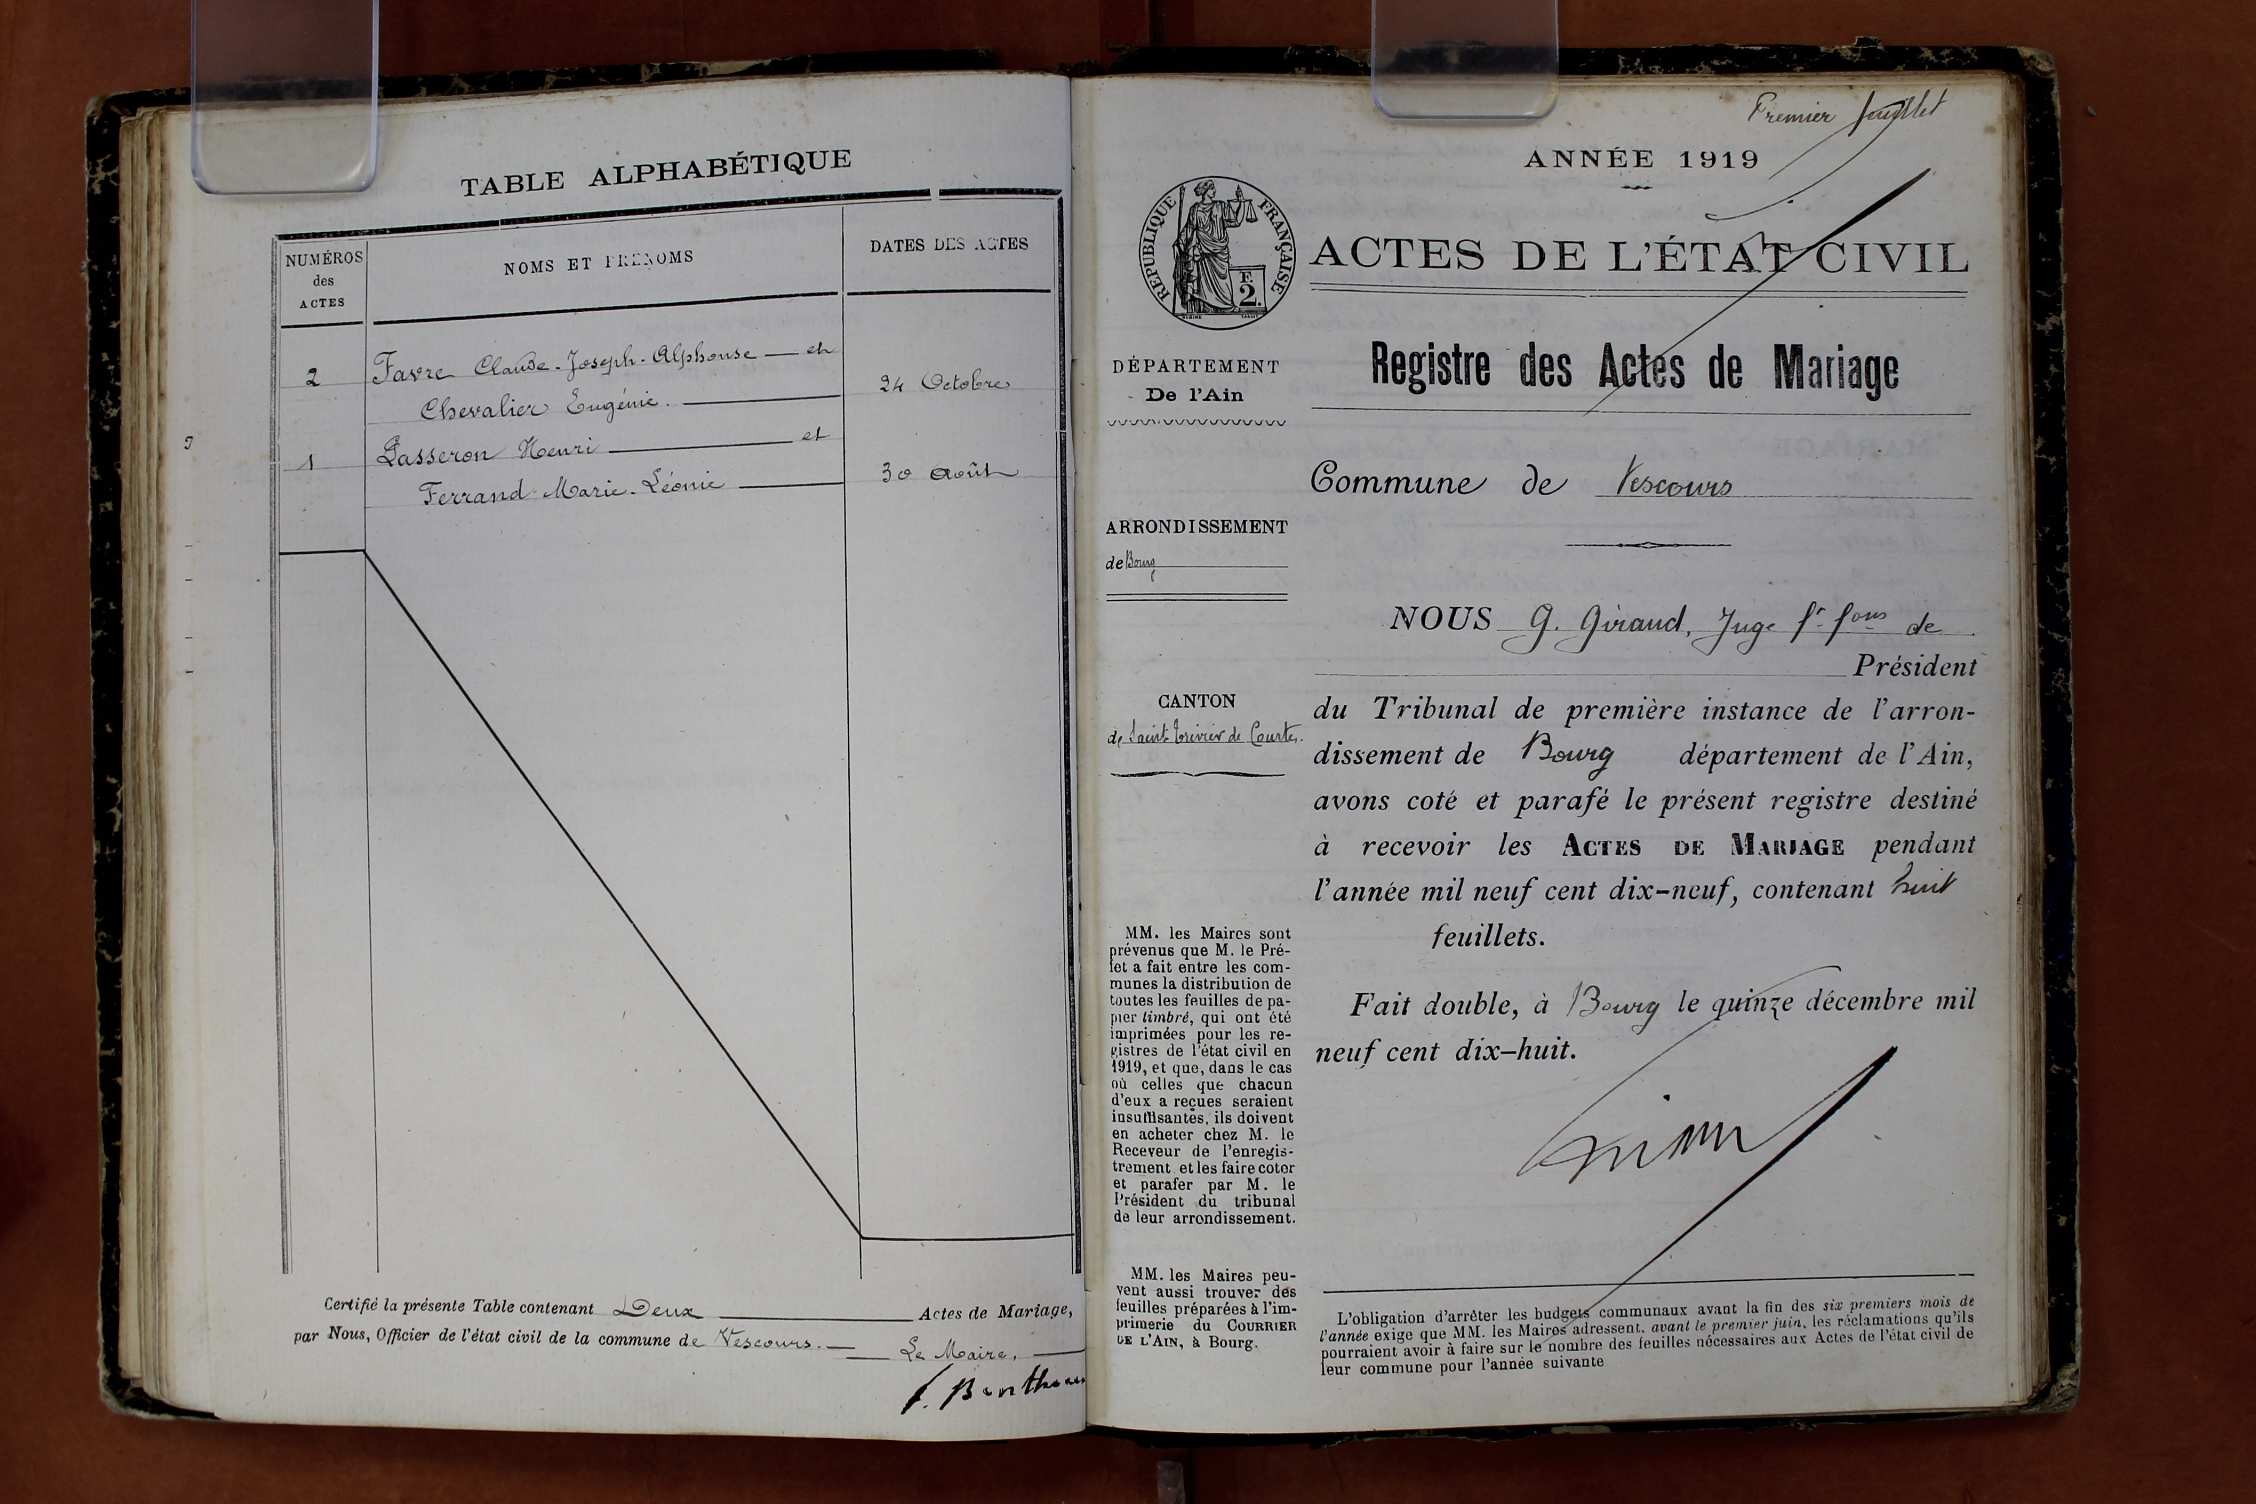 TABLE ALPHABÉTIQUE
NUMÉROS
des
ACTES
NOMS ET PRÉNOMS
DATES DES ACTES
2
Favre Claude-Joseph-Alphonse — et
Chevalier Eugénie.
24 Octobre
1
Passeron Henri — et
Ferrand Marie-Léonie
30 Août
Certifié la présente Table contenant Deux Actes de Mariage,
par Nous, Officier de l'état civil de la commune de Vescours.
Le Maire,
Premier feuillet
ANNÉE 1919
RÉPUBLIQUE FRANÇAISE
F
2.
ACTES DE L'ÉTAT CIVIL
Registre des Actes de Mariage
DÉPARTEMENT
De l'Ain
Commune de Vescours
ARRONDISSEMENT
de Bourg
CANTON
de Saint Trivier de Courtes.
NOUS G. Giraud, Juge fr fons de
Président
du Tribunal de première instance de l'arron-
dissement de Bourg département de l'Ain,
avons coté et parafé le présent registre destiné
à recevoir les ACTES DE MARIAGE pendant
l'année mil neuf cent dix-neuf, contenant huit
feuillets.
Fait double, à Bourg le quinze décembre mil
neuf cent dix-huit.
MM. les Maires sont
prévenus que M. le Pré-
fet a fait entre les com-
munes la distribution de
toutes les feuilles de pa-
pier timbré, qui ont été
imprimées pour les re-
gistres de l'état civil en
1919, et que, dans le cas
où celles que chacun
d'eux a reçues seraient
insuffisantes, ils doivent
en acheter chez M. le
Receveur de l'enregis-
trement et les faire coter
et parafer par M. le
Président du tribunal
de leur arrondissement.
MM. les Maires peu-
vent aussi trouver des
feuilles préparées à l'im-
primerie du COURRIER
DE L'AIN, à Bourg.
L'obligation d'arrêter les budgets communaux avant la fin des six premiers mois de
l'année exige que MM. les Maires adressent, avant le premier juin, les réclamations qu'ils
pourraient avoir à faire sur le nombre des feuilles nécessaires aux Actes de l'état civil de
leur commune pour l'année suivante